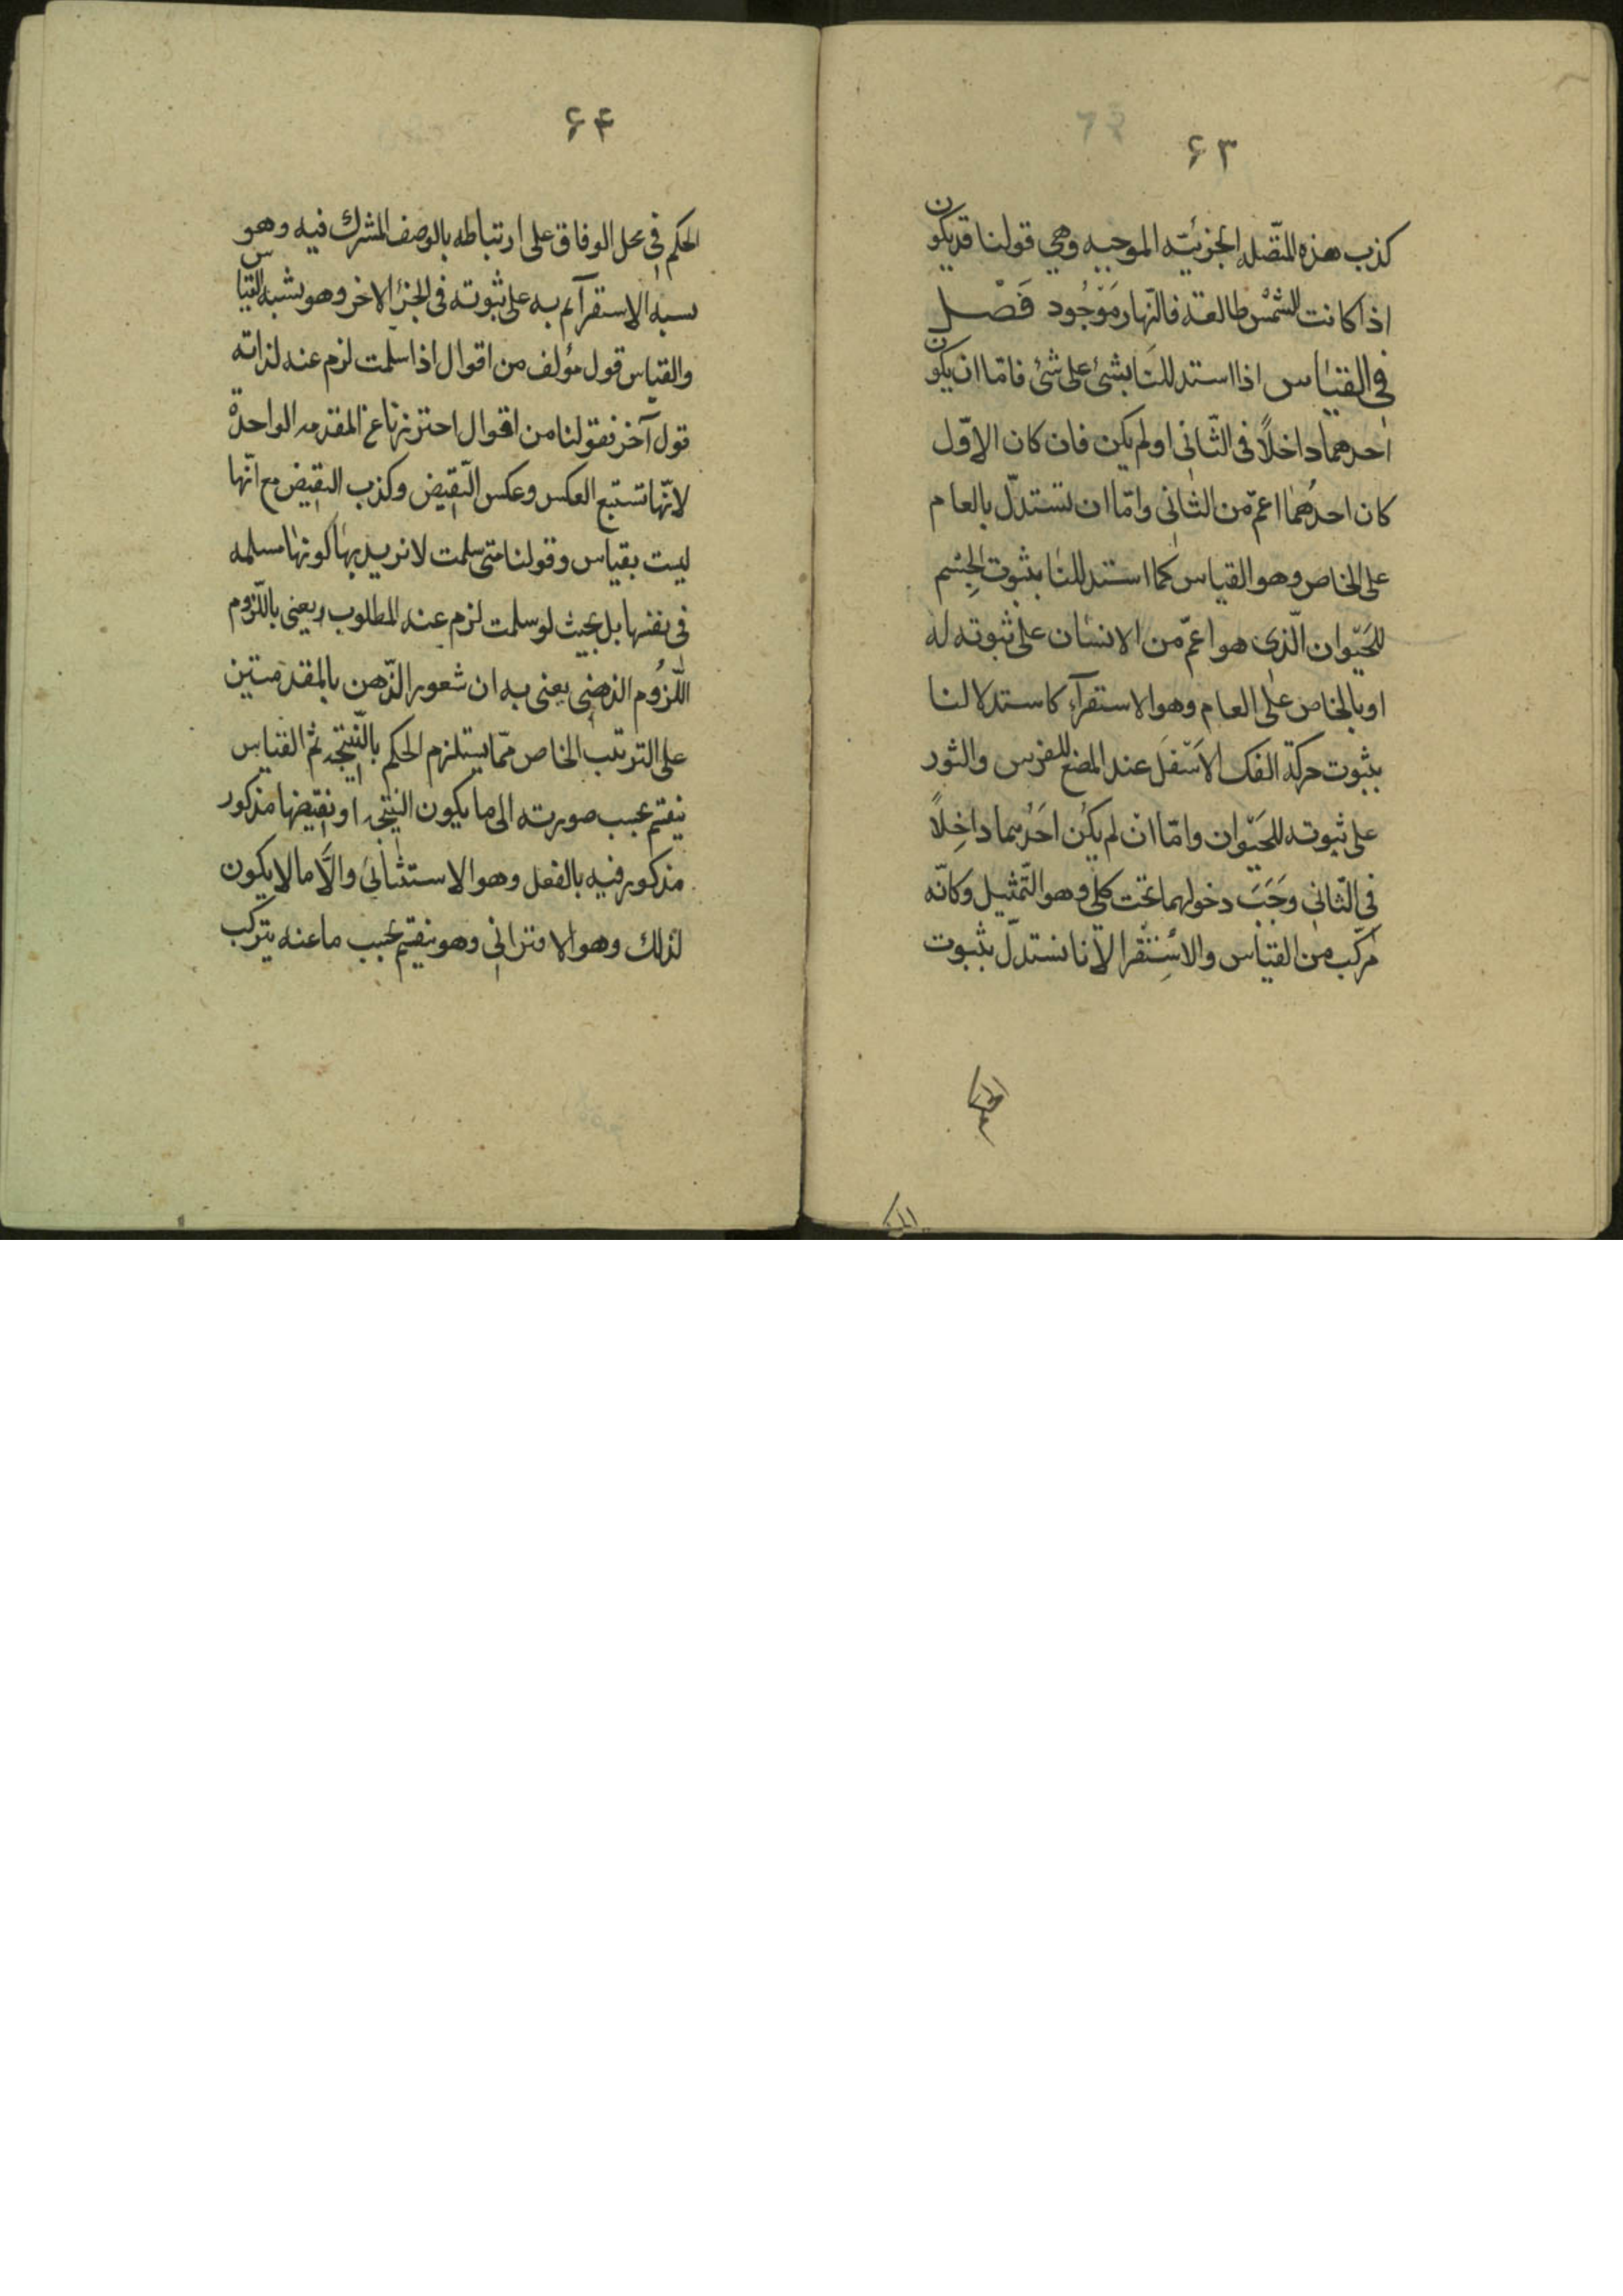 ۶۳
كذب هذه المتّصله الجزئيّه الموجبه وهي قولنا قد يكون
اذا كانت الشمس طالعة فالنّهار مَوْجُود فَصْل
في القياس اذا استدللنا بشئ على شئ فامّا ان يكون
احدهما داخلًا فى الثّانى او لم يكن فان كان الاوّل
كان احدُهما اعمّ من الثانى وامّا ان نستدلّ بالعام
على الخاص وهو القياس كما استدللنا بثبوت الجِسْم
للحَيْوان الّذى هو اعمّ من الانسان على ثبوته له
او بالخاص على العام وهو الاستقرآء كاستدلالنا
بثبوت حركة الفك الاَسْفَل عند المضغ للفرس والثور
على ثبوته للحَيْوان وامّا ان لم يكُن اَحَدُهما داخِلًا
في الثّانى وَجَبَ دخولهما تحت كلّي وهو التّمثيل وكانّه
مركّب من القياس والاسْتِقْرا لانا نستدلّ بثبوت
الحكم
۶۴
الحكم في محل الوفاق على ارتباطه بالوصف المشرك فيه وهو
يسبه الاستقرآ ثم به على ثبوته فى الجزئ الاخر وهو يشبه القياس
والقياس قول مؤلف من اقوال اذا سلمت لزم عنه لذاته
قول آخر فقولنا من اقوال احترزنا عن المقدمه الواحدة
لانّها تستتبع العكس وعكس النّقيض وكذب النقيض مع انّها
ليست بقياس وقولنا متى سلمت لا نريد بها كونها مسلمه
فى نفسها بل بحيث لو سلمت لزم عنه المطلوب ويعنى باللّزوم
اللّزُوم الذهنى يعنى به ان شعور الذّهن بالمقدمتين
على الترتيب الخاص ممّا يستلزم الحكم بالنّتيجه ثم القياس
ينقسم بحسب صورته الى ما يكون النتيجه او نقيضها مذكور
مذكور فيه بالفعل وهو الاستثنائى والّا ما لا يكون
لذلك وهو الاقترانى وهو ينقسم بحسب ما عنه يتركب